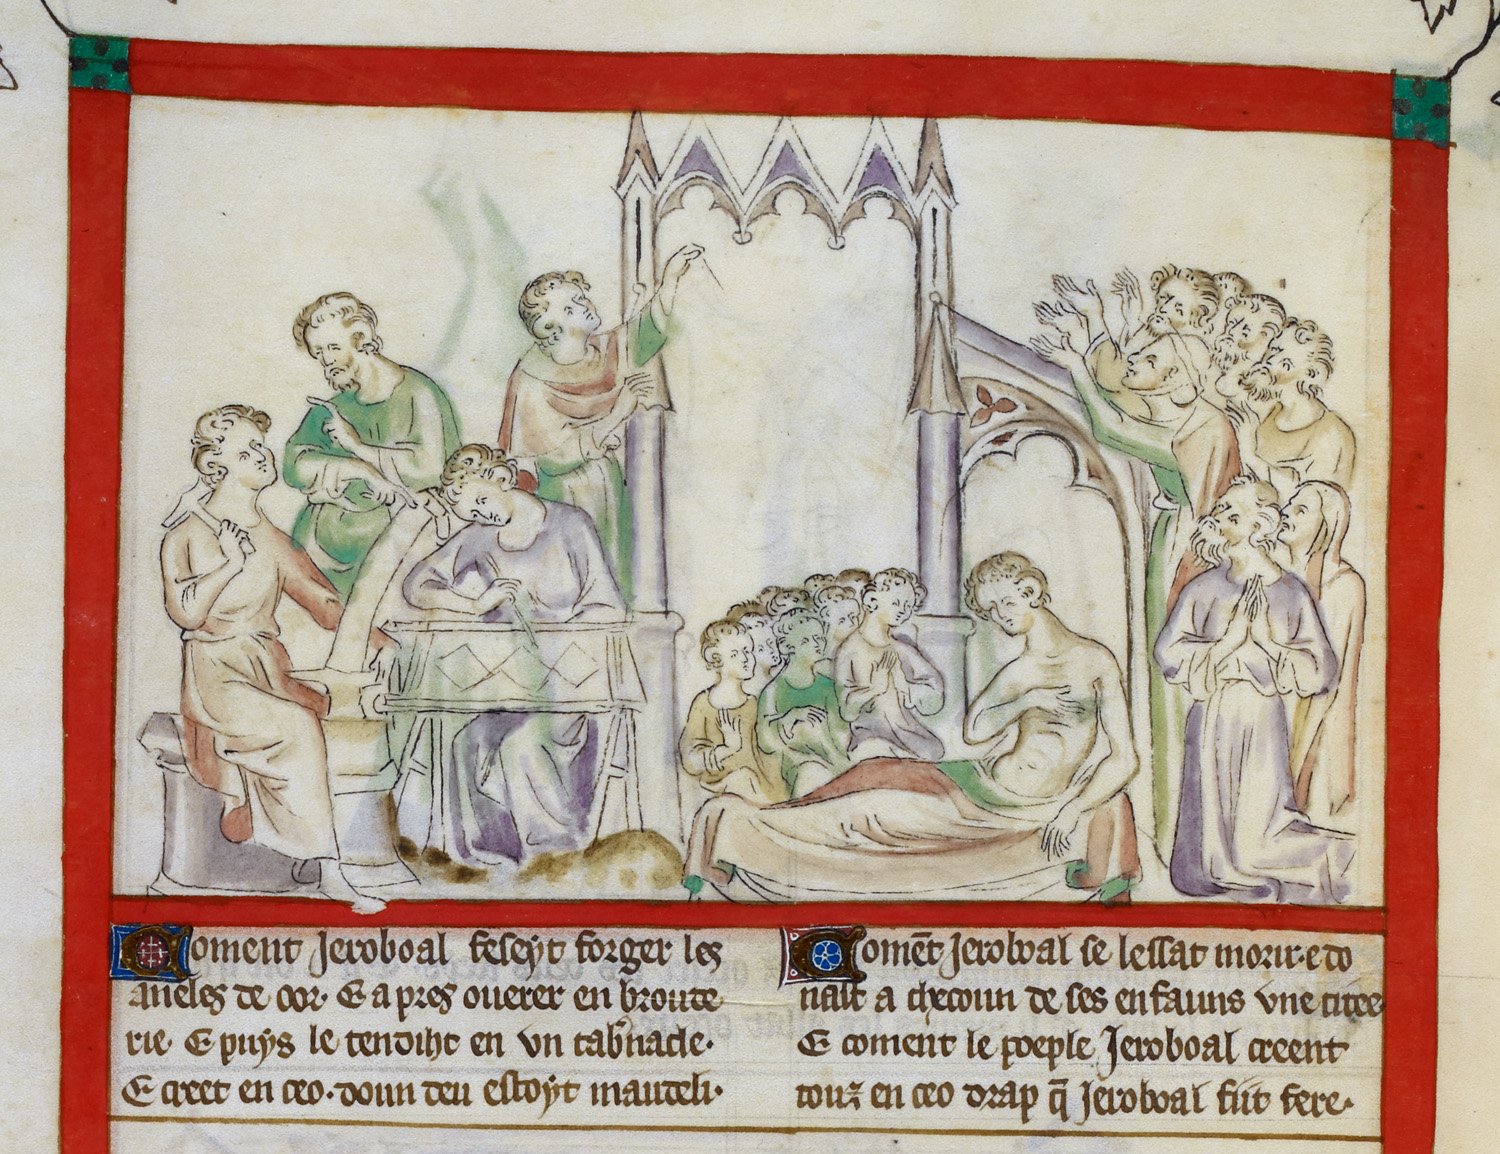 Coment Jeroboal feseyt forger les
aneles de oor· E apres ouerer en broude
rie· E puys le tendiht en vn tab'nacle·
E creet en ceo· doun deu estoyt mauteli·
Comẽt Jeroboal se lessat morir· e do
nait a checoun de ses enfauns vne citee
E coment le poeple Jeroboal creent
touz en ceo drap q̃ Jeroboal fiit fere·